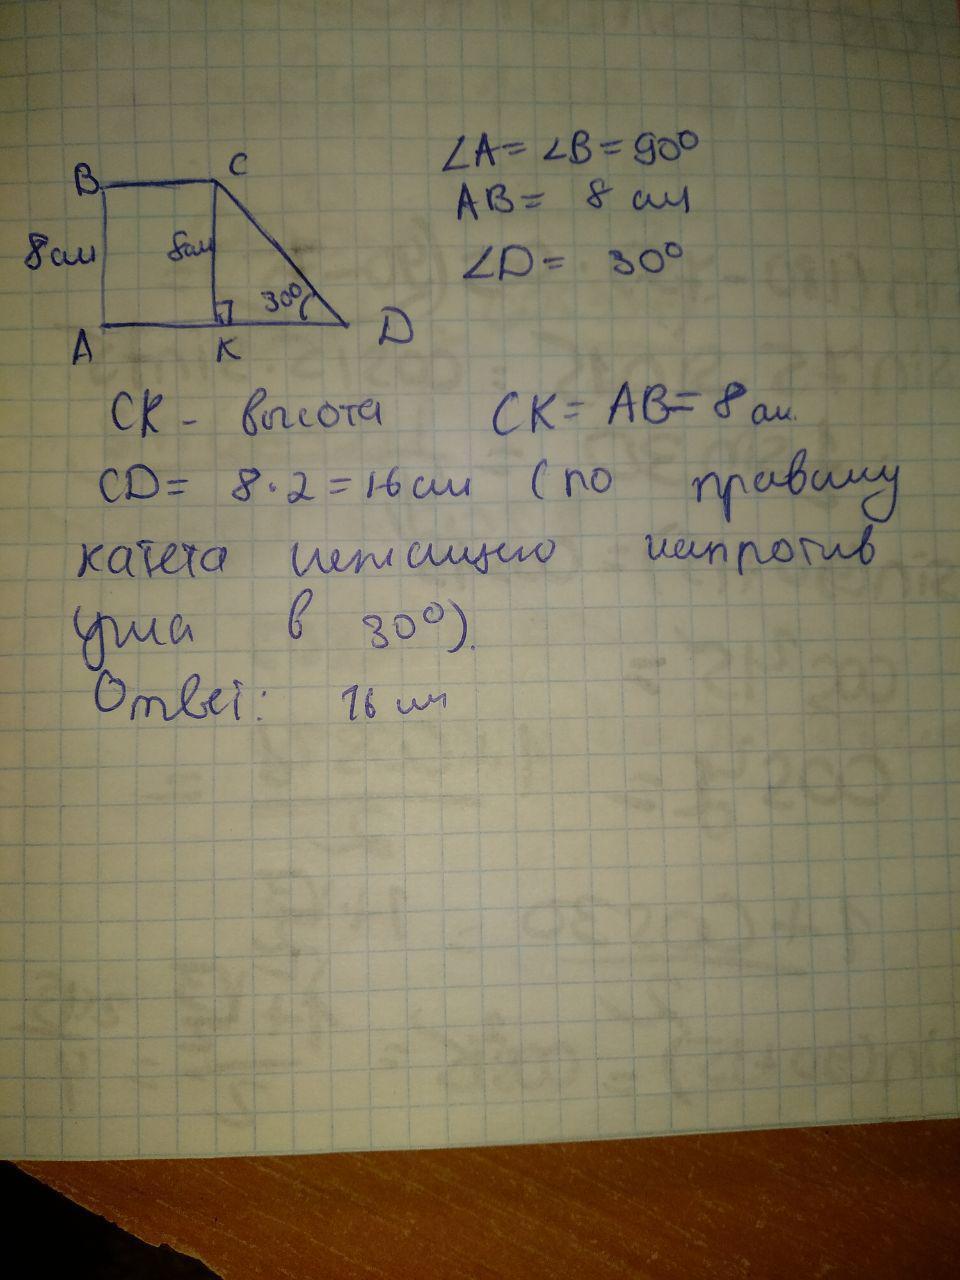 B C
∠A = ∠B = 90°
AB = 8 см
8см 8см
∠D = 30°
30°
A K D
CK - высота CK = AB = 8 см.
CD = 8·2 = 16 см (по правилу
катета лежащего напротив
угла в 30°).
Ответ: 16 см